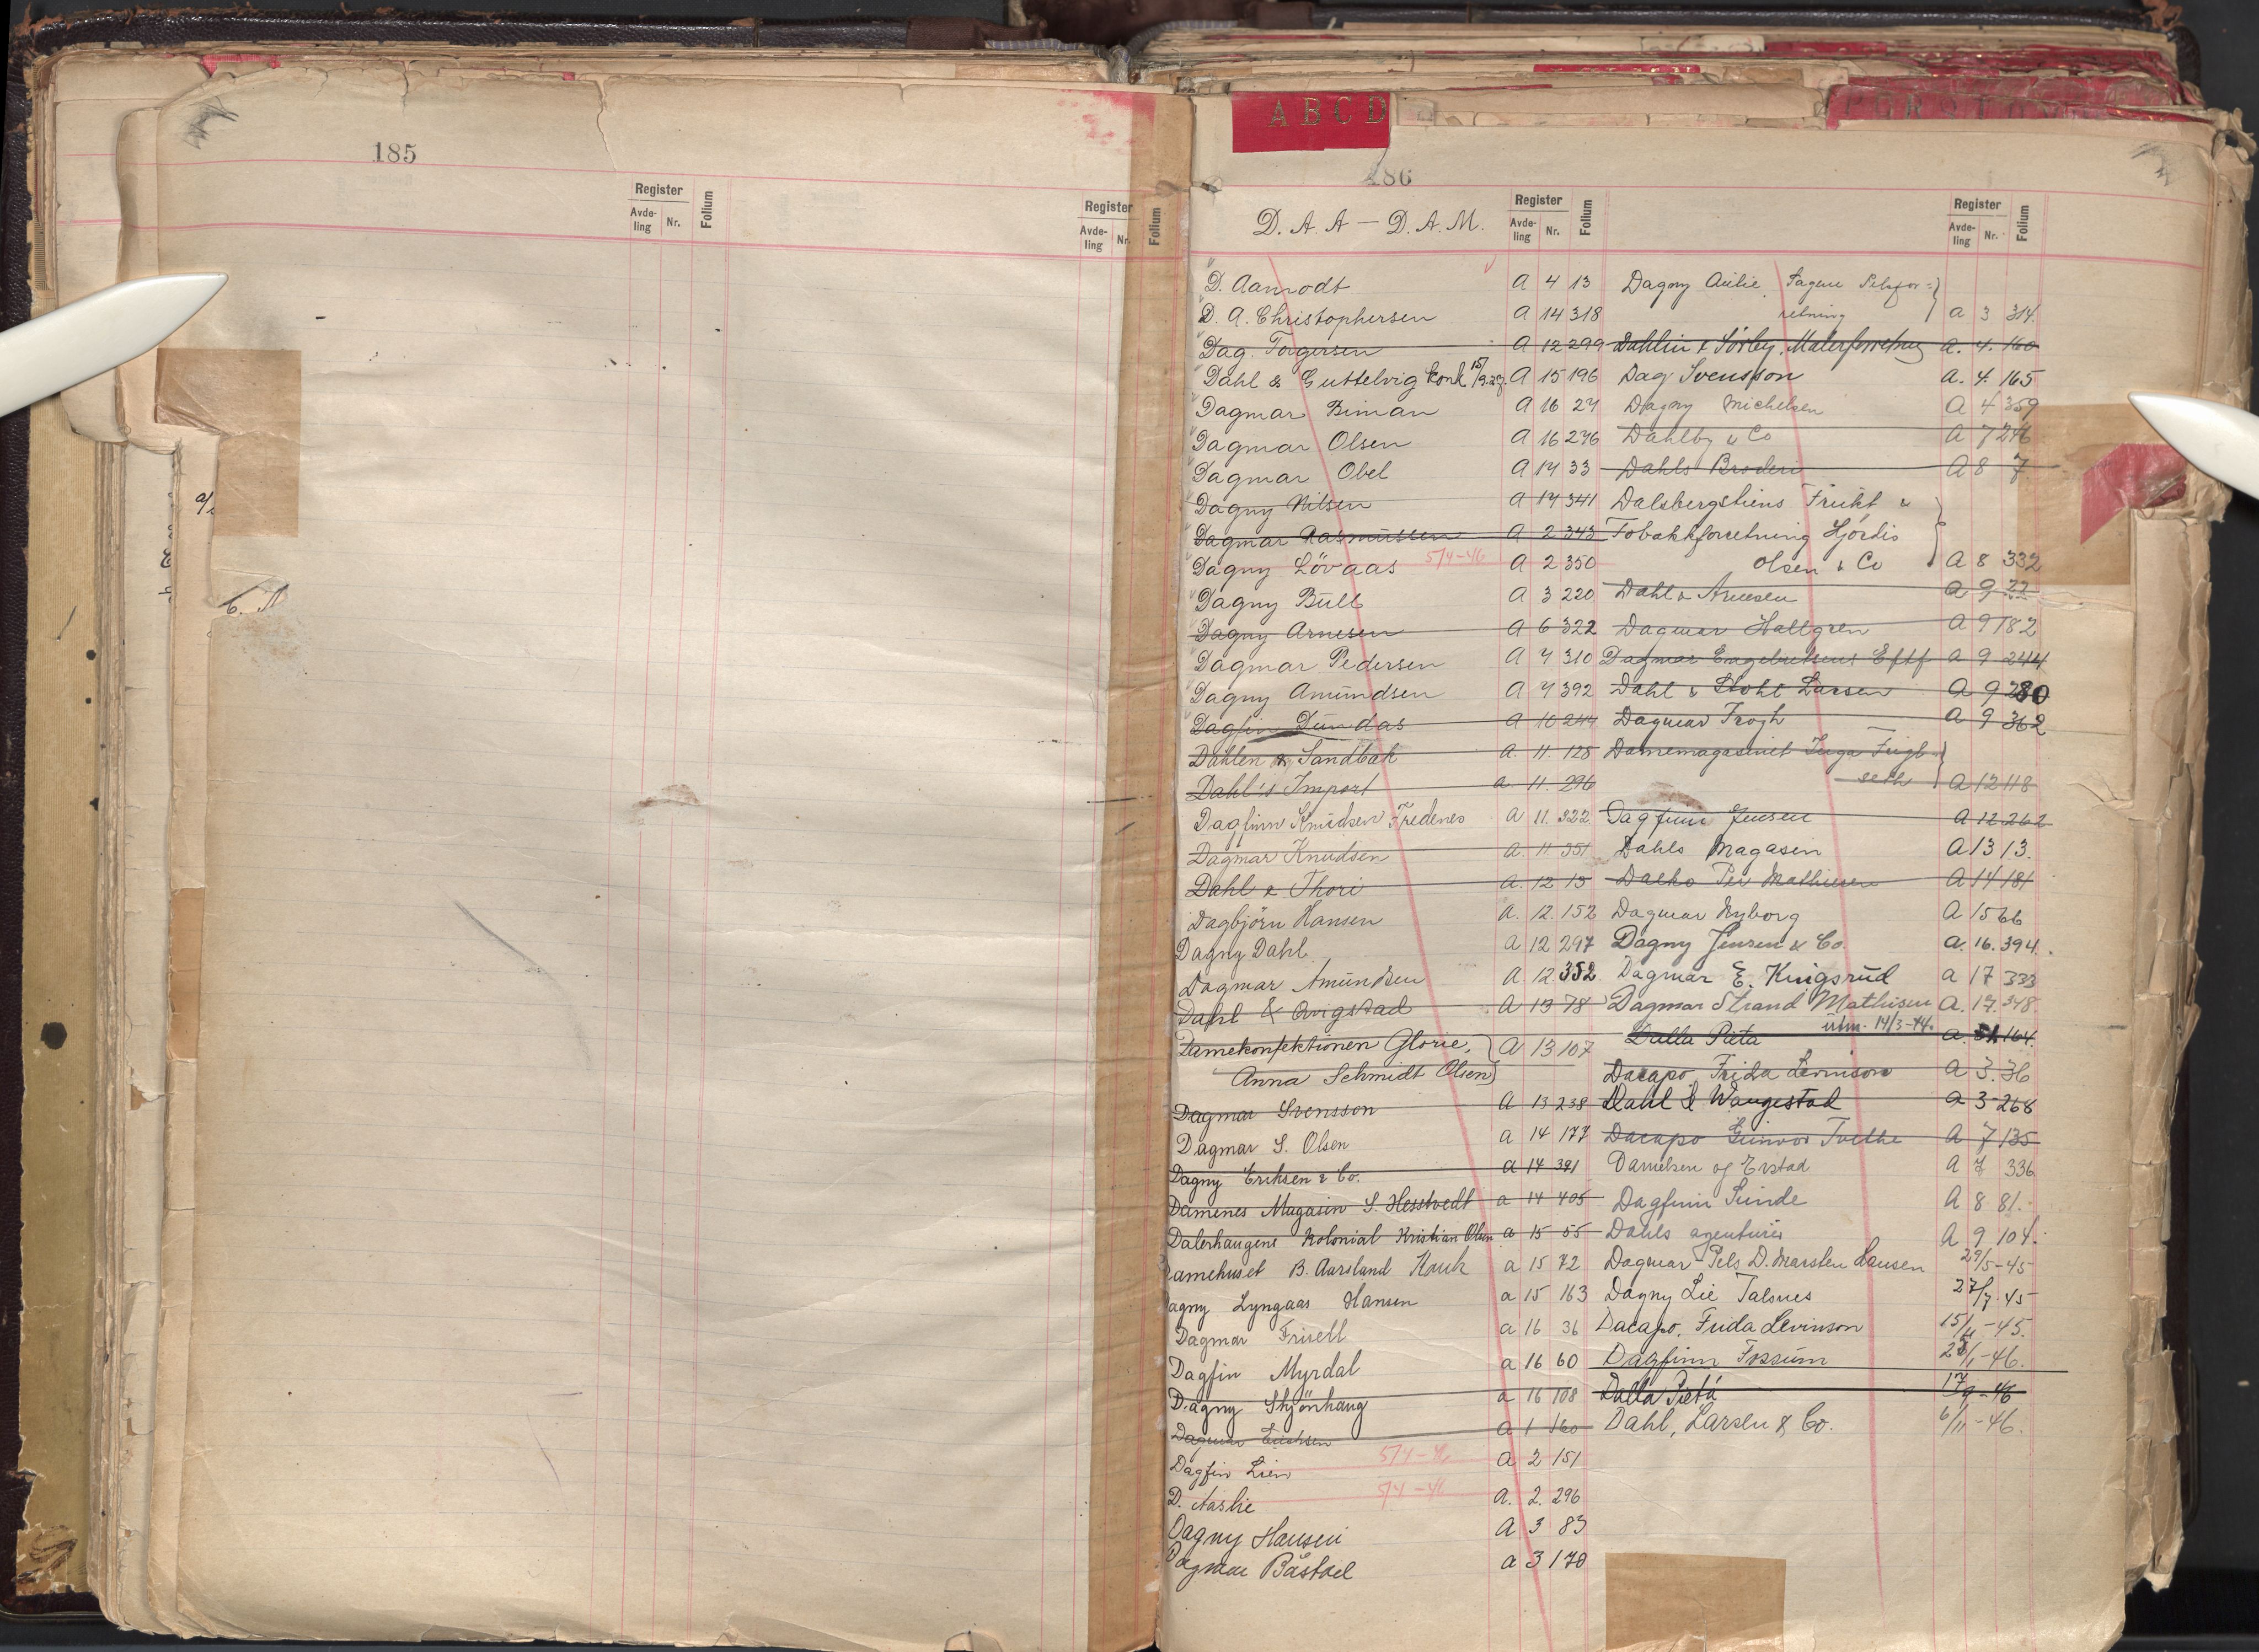 185
Register
Avde-
ling
Nr.
Folium
Register
Avde-
ling
Nr.
Folium
A B C D
186
D. A. A — D. A. M.
Register
Avde-
ling
Nr.
Folium
Register
Avde-
ling
Nr.
Folium
D. Aamodt A 4 13
D. A. Christophersen A 14 318
Dag. Torgersen A 12 299
Dahl & Guttelvig Konk 15/9.27. A 15 196
Dagmar Biman A 16 27
Dagmar Olsen A 16 276
Dagmar Obel A 17 33
Dagny Nilsen A 17 341
Dagmar Rasmussen A 2 343
Dagny Lövaas 5/4-46 A 2 350
Dagny Bull A 3 220
Dagny Arnesen A 6 322
Dagmar Pedersen A 7 310
Dagny Amundsen A 7 392
Dagfin Dundas A 10 244
Dahlen & Sandbak A. 11. 128
Dahl's Import a. 11. 296
Dagfinn Knudsen Fredenes A 11. 322
Dagmar Knudsen A. 11 351
Dahl & Thori A. 12 15
Dagbjörn Hansen A. 12. 152
Dagny Dahl A 12 297
Dagmar Amundsen A 12 352
Dahl & Qvigstad A 13 78
Damekonfektionen Glorie, A 13 107
Anna Schmidt Olsen
Dagmar Svensson A 13 238
Dagmar S. Olsen a 14 177
Dagny Eriksen & Co. a 14 391
Damenes Magasin S. Hesstvedt a 14 405
Dalerhaugens Kolonial Kristian Olsen a 15 55
amehuset B. Aarsland Hauk a 15 72
agny Lyngaas Hansen a 15 163
Dagmar Frisell a 16 36
Dagfin Myrdal a 16 60
Dagny Skjönhaug a 16 108
Dagmar Erichsen a 1 160
Dagfin Lien 5/4-46 a 2 151
D. Aaslie 5/4-46 A. 2. 296
Dagny Hansen A 3 83
Dagmar Båstad a 3 170
Dagny
retning a 3 314.
Dahlin & Sörby, Malerforretning A. 4. 160
Dag Svensson A. 4. 165
Dagny Michelsen A 4 359
Dahlby & Co A 7 246
Dahls Broderi A 8 7
Dalsbergstiens Frukt &
Tobakkforretning Hjördis
Olsen & Co A 8 332
Dahl & Arnesen A 9 22
Dagmar Hallgren A 9 182
Dagmar Engebretsens Eftf A 9 244
Dahl & Stohl Larsen A 9 280
Dagmar Frogh A 9 362
Damemagasinet Inga
seth A 12 118
Dagfinn Jensen A 12 262
Dahls Magasin A 13 13.
Dalko Per Mathiesen A 14 181
Dagmar Nyborg A 15 66
Dagny Jensen & Co. a. 16. 394.
Dagmar E. Kingsrud a 17 333
Dagmar Strand Mathisen A. 17. 348.
Dalla Pieta utm. 14/3-44. a. 164.
Dacapo Frida Levinson A 3. 36
Dahl & Wangestad a 3 268
Dacapo Gunvor Tvethe A 7 135
Danielsen og Erstad A 7 336
Dagfinn Sunde A 8 81.
Dahls agenturer A 9 104.
Dagmar Pels D. Marsten Hansen 29/5-45
Dagny Lie Talsnes 27/7-45
Dacapo, Frida Levinson 15/11-45.
Dagfinn Fossum 28/1-46.
Dalla Pietá 17/9-46
Dahl, Larsen & Co. 6/11-46.